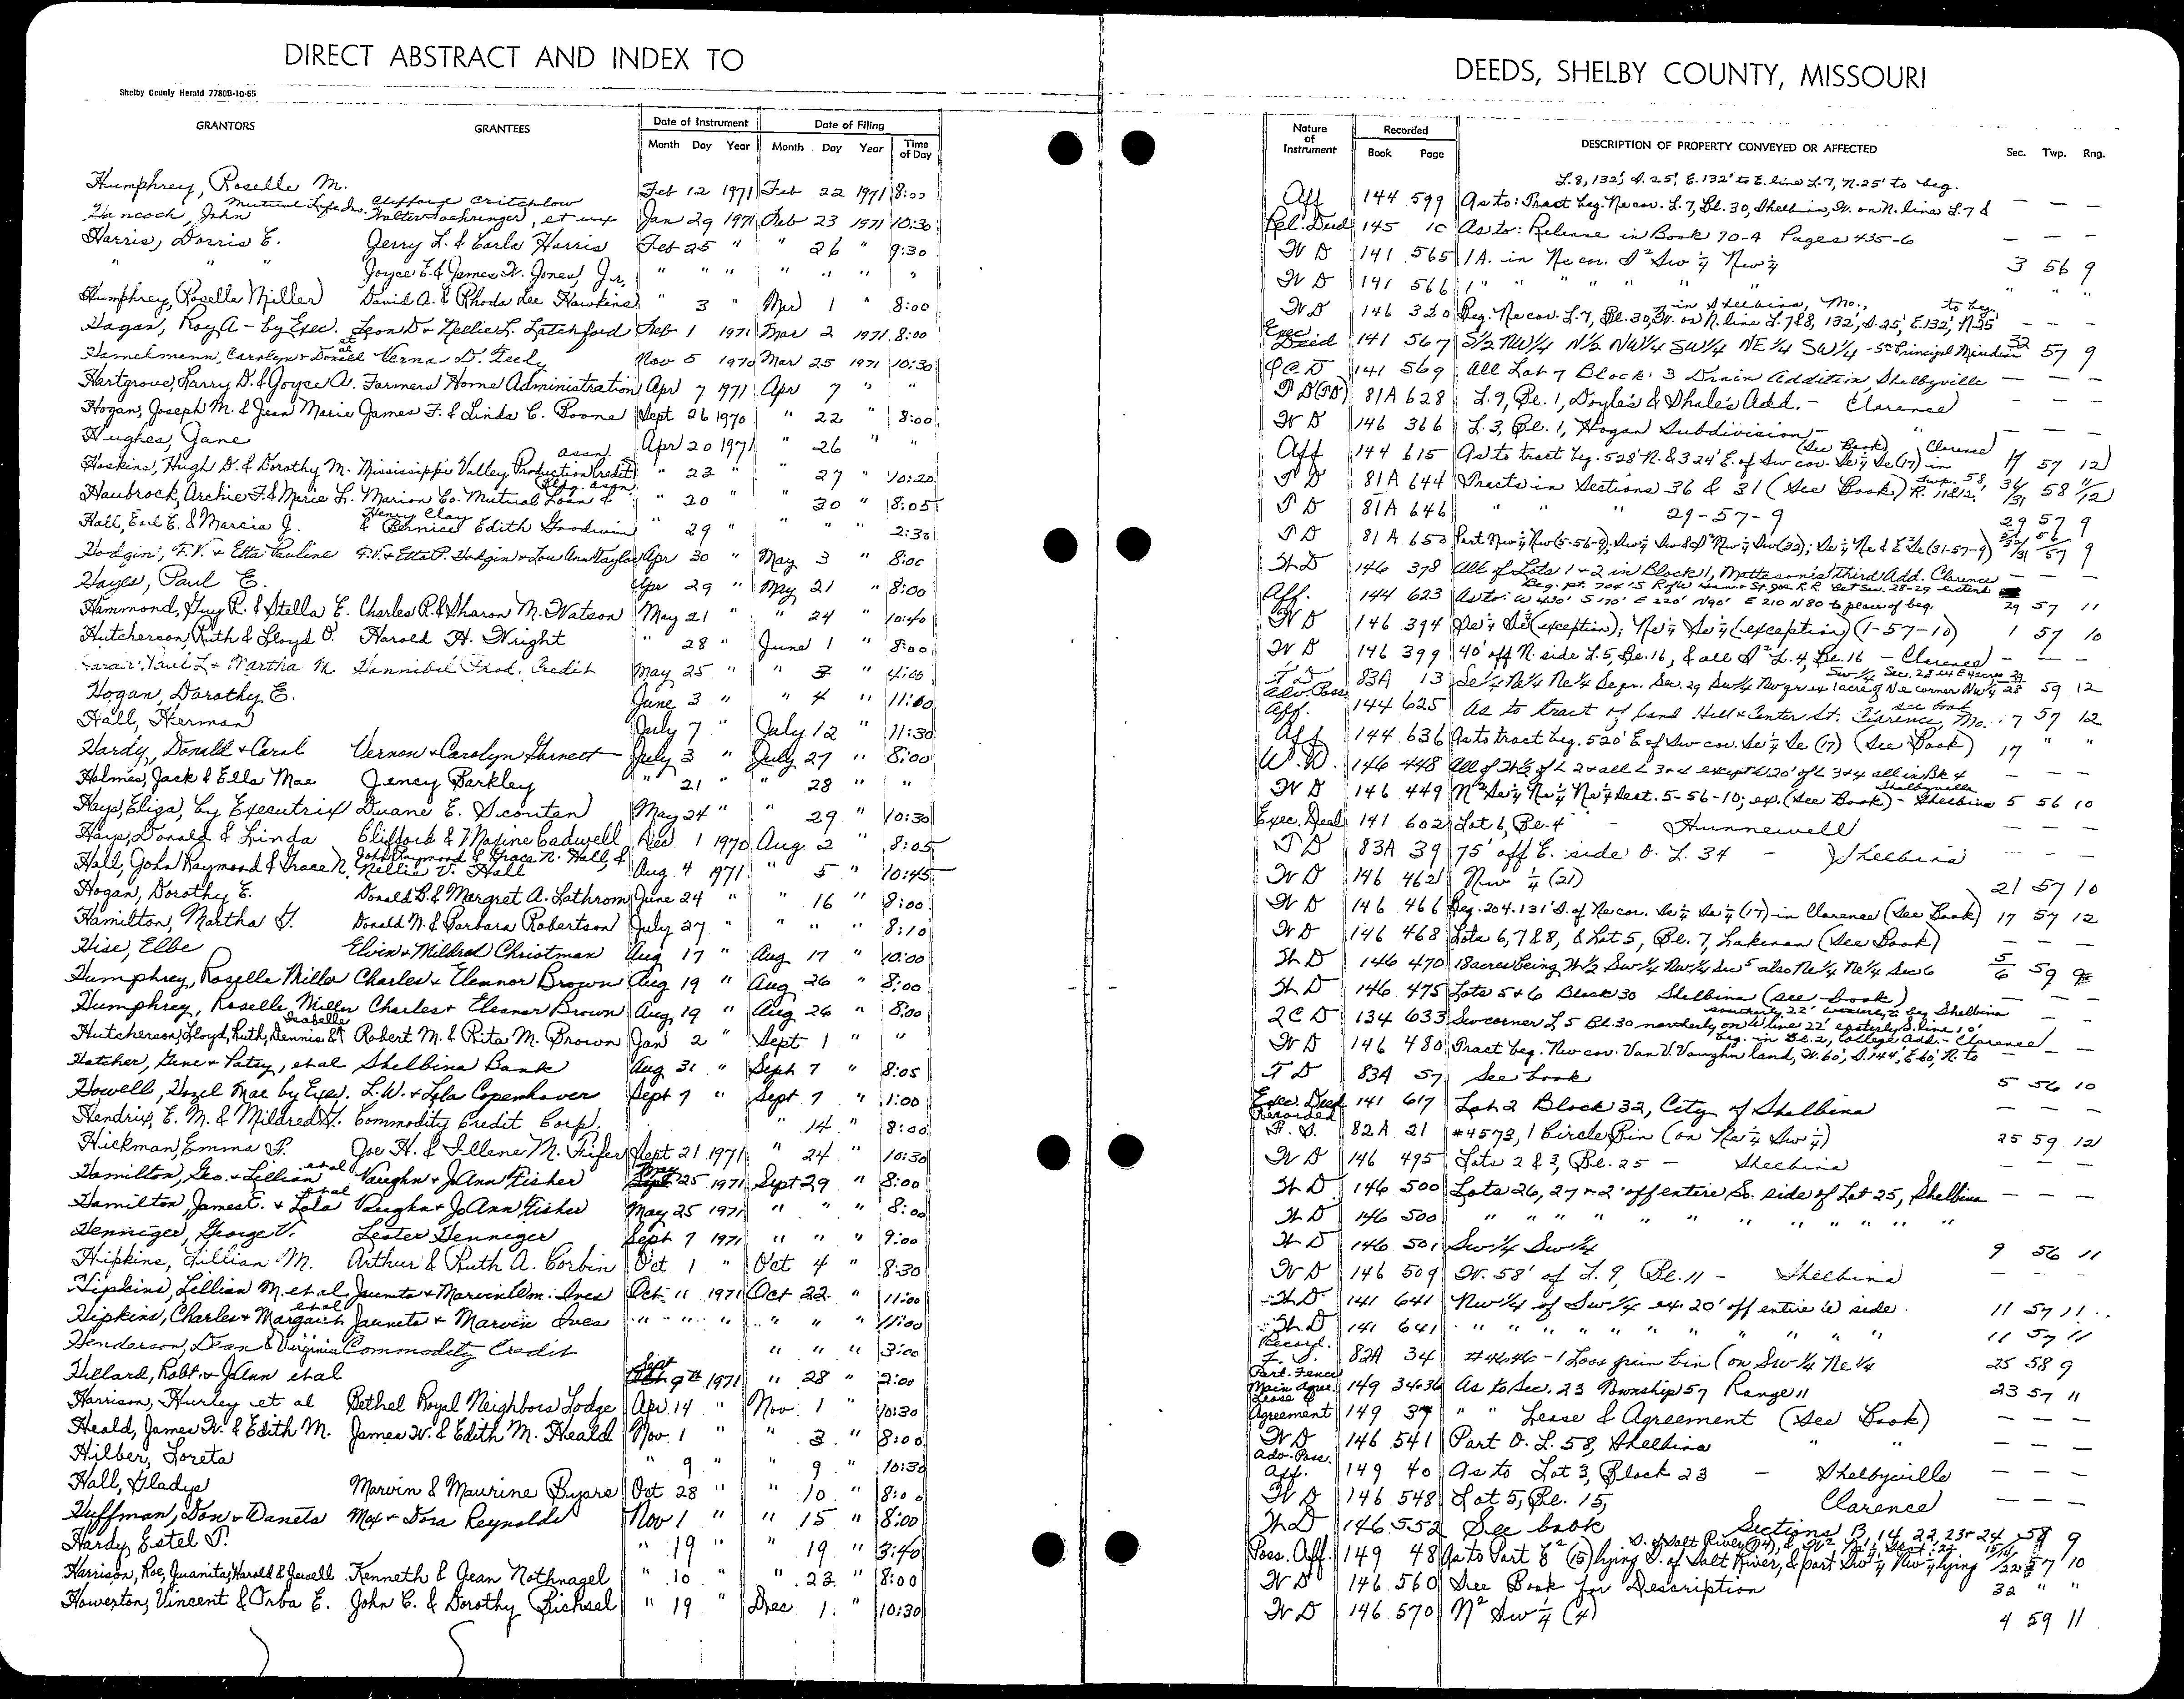 DIRECT ABSTRACT AND INDEX TO
Shelby County Herald 7780B-10-65
GRANTORS GRANTEES Date of Instrument Date of Filing
Month Day Year Month Day Year Time of Day
Humphrey, Roselle M. Feb 12 1971 Feb 22 1971 8:00
Mutual Life Ins. Clifford Critchlow
Hancock, John Walter et ux Jan 29 1971 Feb 23 1971 10:30
Harris, Dorris E. Jerry L. & Carla Harris Feb 25 " " 26 " 9:30
" " Joyce E. & James W. Jones, Jr. " " " " " " "
Humphrey, Roselle Miller David A. & Rhoda Lee Hawkins " 3 " Mar 1 " 8:00
Hagan, Roy A - by Exec. Leon D & Nellie L. Latchford Feb 1 1971 Mar 2 1971 8:00
Carolyn + Donald et al Verna D. Feely Nov 5 1970 Mar 25 1971 10:30
Hartgrove, Larry D. & Joyce A. Farmers Home Administration Apr 7 1971 Apr 7 " "
Hogan, Joseph M. & Jean Marie James F. & Linda C. Boone Sept 26 1970 " 22 " 8:00
Hughes, Jane Apr 20 1971 " 26 " "
Hoskins, Hugh D. & Dorothy M. Mississippi Valley Production Credit assn. " 23 " " 27 " 10:20
Haubrock, Archie F. & Marie L. Marion Co. Mutual Loan & Bldg. assn. " 20 " 30 " 8:05
Hall, Earl E. & Marcia J. Henry Clay & Bernice Edith Goodwin " 29 " " " 2:30
Hodgin, F.V. & Etta Pauline F.V. & Etta P. Hodgin & Lou Ann Taylor Apr 30 " May 3 " 8:00
Hayes, Paul E. Apr 29 " May 21 " 8:00
Hammond, Guy R. & Stella E. Charles R. & Sharon M. Watson May 21 " " 24 " 10:40
Hutcherson, Ruth & Lloyd O. Harold H. Wright " 28 " June 1 " 8:00
Martha M. Hannibal Prod. Credit May 25 " " 3 " 4:00
Hogan, Dorothy E. June 3 " " 4 " 11:00
Hall, Herman July 7 " July 12 " 11:30
Hardy, Donald & Carol Vernon & Carolyn Garnett July 3 " July 27 " 8:00
Holmes, Jack & Ella Mae Jency Barkley " 21 " " 28 " "
Hays, Eliza, by Executrix Duane E. Scouten May 24 " " 29 " 10:30
Hays, Donald & Linda Clifford & Maxine Cadwell Dec 1 1970 Aug 2 " 8:05
Hall, John Raymond & Grace N. John Raymond & Grace N. Hall, & Nellie V. Hall Aug 4 1971 " 5 " 10:45
Hogan, Dorothy E. Donald B. & Margret A. Lathrom June 24 " " 16 " 8:00
Hamilton, Martha G. Donald N. & Barbara Robertson July 27 " " " " 8:10
Hise, Elbe Elvin & Mildred Christman Aug 17 " Aug 17 " 10:00
Humphrey, Roselle Miller Charles & Eleanor Brown Aug 19 " Aug 26 " 8:00
Humphrey, Roselle Miller Charles & Eleanor Brown Aug 19 " Aug 26 " 8:00
Hutcherson, Lloyd, Ruth, Dennis & Isabelle Robert M. & Rita M. Brown Jan 2 " Sept 1 " "
Hatcher, Gene & Patsy, et al Shelbina Bank Aug 31 " Sept 7 " 8:05
Howell, Hazel Mae by Exec. L.W. & Lola Copenhaver Sept 7 " Sept 7 " 1:00
Hendrix, E. M. & Mildred G. Commodity Credit Corp. " 14 " 8:00
Hickman, Emma F. Joe H. & Illene M. Fifer Sept 21 1971 " 24 " 10:30
Hamilton, Geo. & Lillian et al Vaughn & JoAnn Fisher May 25 1971 Sept 29 " 8:00
Hamilton, James E. & Lola et al Vaughn & JoAnn Fisher May 25 1971 " " " 8:00
Henniger, George V. Lester Henniger Sept 7 1971 " " " 9:00
Hipkins, Lillian M. Arthur & Ruth A. Corbin Oct 1 " Oct 4 " 8:30
Hipkins, Lillian M. et al Juanita & Marvin Wm. Ives Oct 11 1971 Oct 22 " 11:00
Hipkins, Charles & Margaret et al Juanita & Marvin Ives " " " " " " 11:00
Henderson, Dean & Virginia Commodity Credit " " " 3:00
Hillard, Robt. & JoAnn et al Sept 9th 1971 " 28 " 2:00
Harrison, Hurley et al Bethel Royal Neighbors Lodge Apr 14 " Nov. 1 " 10:30
Heald, James W. & Edith M. James W. & Edith M. Heald Nov. 1 " 3 " 8:00
Hilber, Loreta " 9 " " 9 " 10:30
Hall, Gladys Marvin & Maurine Bryars Oct 28 " " 10 " 8:00
Huffman, Don & Waneta Max & Dora Reynolds Nov 1 " " 15 " 8:00
Hardy Estel P. " 19 " " 19 " 3:40
Harrison, Roe, Juanita, Harold & Jewell Kenneth & Jean Nothnagel " 10 " " 23 " 8:00
Howerton, Vincent & Orba E. John C. & Dorothy Bichsel " 19 " Dec 1 " 10:30
DEEDS, SHELBY COUNTY, MISSOURI
Nature of Instrument Recorded DESCRIPTION OF PROPERTY CONVEYED OR AFFECTED Sec. Twp. Rng.
Book Page
L. 8, 132', S. 25', E. 132' to E. line L. 7, N. 25' to beg.
Aff 144 599 As to: Tract beg. Ne cor. L. 7, Bl. 30, Shelbina, W. on N. line L. 7 & — — —
Rel. Deed 145 10 As to: Release in Book 70-A Pages 435-6 — — —
W D 141 565 1 A. in Ne cor. S² Sw ¼ Nw ¼ 3 56 9
W D 141 566 1 " " " " " " " "
W D 146 320 Beg. Ne cor. L. 7, Bl. 30, in Shelbina, Mo., W. on N. line L. 7 & 8, 132', S. 25', E. 132', N 25' to beg. — — —
Exec Deed 141 567 S½ NW¼ N½ NW¼ SW¼ NE¼ SW¼ - 5th Principal Meridian 32 57 9
Q C D 141 569 All Lot 7 Block 3 Drain Addition, Shelbyville — — —
T D 81A 628 L. 9, Bl. 1, Doyle's & Shale's Add. - Clarence — — —
W D 146 366 L. 3, Bl. 1, Hogan Subdivision - " — — —
Aff 144 615 As to tract beg. 528' N. & 324' E. of Sw cor. Se ¼ Se (17) in Clarence (See Book) 17 57 12
T D 81A 644 Tracts in Sections 36 & 31 (See Book) Twp. 58, R. 11 & 12, 36/31 58 11/12
T D 81A 646 " " " 29-57-9 29 57 9
T D 81A 653 Part Nw ¼ Nw (5-56-9); Sw ¼ Sw & S² Nw ¼ Sw (32); Se ¼ Ne & E² Se (31-57-9)
W D 146 378 All of Lots 1 & 2 in Block 1, Matteson's Third Add. Clarence — — —
Aff. 144 623 As to: W 430' S 170' E 220' N 90' E 210 N 80 to place of beg. 29 57 11
W D 146 394 Se ¼ Se (exception); Ne ¼ Se ¼ (exception) (1-57-10) 1 57 10
W D 146 399 40' off N. side L. 5, Bl. 16, & all S² L. 4, Bl. 16 - Clarence — — —
T D 83A 13 Se ¼ Ne ¼ Ne ¼ Sec. 29 59 12
Adv. Poss. Aff. 144 625 As to tract of land Hill & Center St. Clarence, Mo. see book 17 57 12
Aff 144 636 As to tract beg. 520' E. of Sw cor. Se ¼ Se (17) (See Book) 17 " "
W.D. 146 448 All of W½ of L 2 & all L 3 & 4 except W 20' of L 3 & 4 all in Bk 4 Shelbyville — — —
W D 146 449 N² Se ¼ Ne ¼ Ne ¼ Sect. 5-56-10; ex. (See Book) - Shelbina 5 56 10
Exec. Deed 141 602 Lot 6, Bl. 4 - Hunnewell — — —
T D 83A 39 75' off E. side O. L. 34 - Shelbina — — —
W D 146 462 Nw ¼ (21) 21 57 10
W D 146 466 Beg. 204.131' S. of Ne cor. Se ¼ Se ¼ (17) in Clarence (See Book) 17 57 12
W D 146 468 Lots 6, 7 & 8, & Lot 5, Bl. 7, Lakenan (See Book) — — —
W D 146 470 18 acres being W½ Sw¼ Nw¼ Sec 5 also Ne¼ Ne¼ Sec 6 5/6 59 9
W D 146 475 Lots 5 & 6 Block 30 Shelbina (see book) — — —
Q C D 134 633 Sw corner L 5 Bl. 30 northerly on W line 22' easterly S. line 10' southerly 22' westerly to beg Shelbina — —
W D 146 480 Tract beg. Nw cor. Van V. Vaughn land, W. 60', S. 144', E. 60', N. to beg. in Bl. 2, College Add. - Clarence — —
T D 83A 57 See book 5 56 10
Exec. Deed 141 617 Lot 2 Block 32, City of Shelbina — — —
F. S. 82A 21 #4573, 1 Circle Bin (on Ne ¼ Sw ¼) 25 59 12
W D 146 495 Lots 2 & 3, Bl. 25 - Shelbina — — —
W D 146 500 Lots 26, 27 & 2' off entire So. side of Lot 25, Shelbina — — —
W D 146 500 " " " " " " " " " "
W D 146 501 Sw ¼ Sw ¼ 9 56 11
W D 146 509 W. 58' of L. 9, Bl. 11 - Shelbina — — —
W.D. 141 641 Nw ¼ of Sw ¼ ex. 20' off entire W side 11 57 11
W.D 141 641 " " " " " " " " " 11 57 11
Record. F. S. 82A 34 - 1 Loos grain bin (on Sw ¼ Ne ¼ 25 58 9
Part. Fence Main Agree. 149 34-36 As to Sec. 23 Township 57 Range 11 23 57 11
Lease & Agreement 149 37 " " Lease & Agreement (See Book) — — —
W D 146 541 Part O. L. 58, Shelbina " " — — —
Adv. Poss. Aff. 149 40 As to Lot 3, Block 23 - Shelbyville — — —
W D 146 548 Lot 5, Bl. 15, Clarence — — —
W D 146 552 See book Sections 13, 14, 22, 23 & 24 58 9
Poss. Aff. 149 48 As to Part E² (15) lying S. of Salt River, & part Sw ¼ Nw ¼ lying 57 10
W D 146 560 See Book for Description 32 " "
W D 146 570 N² Sw ¼ (4) 4 59 11